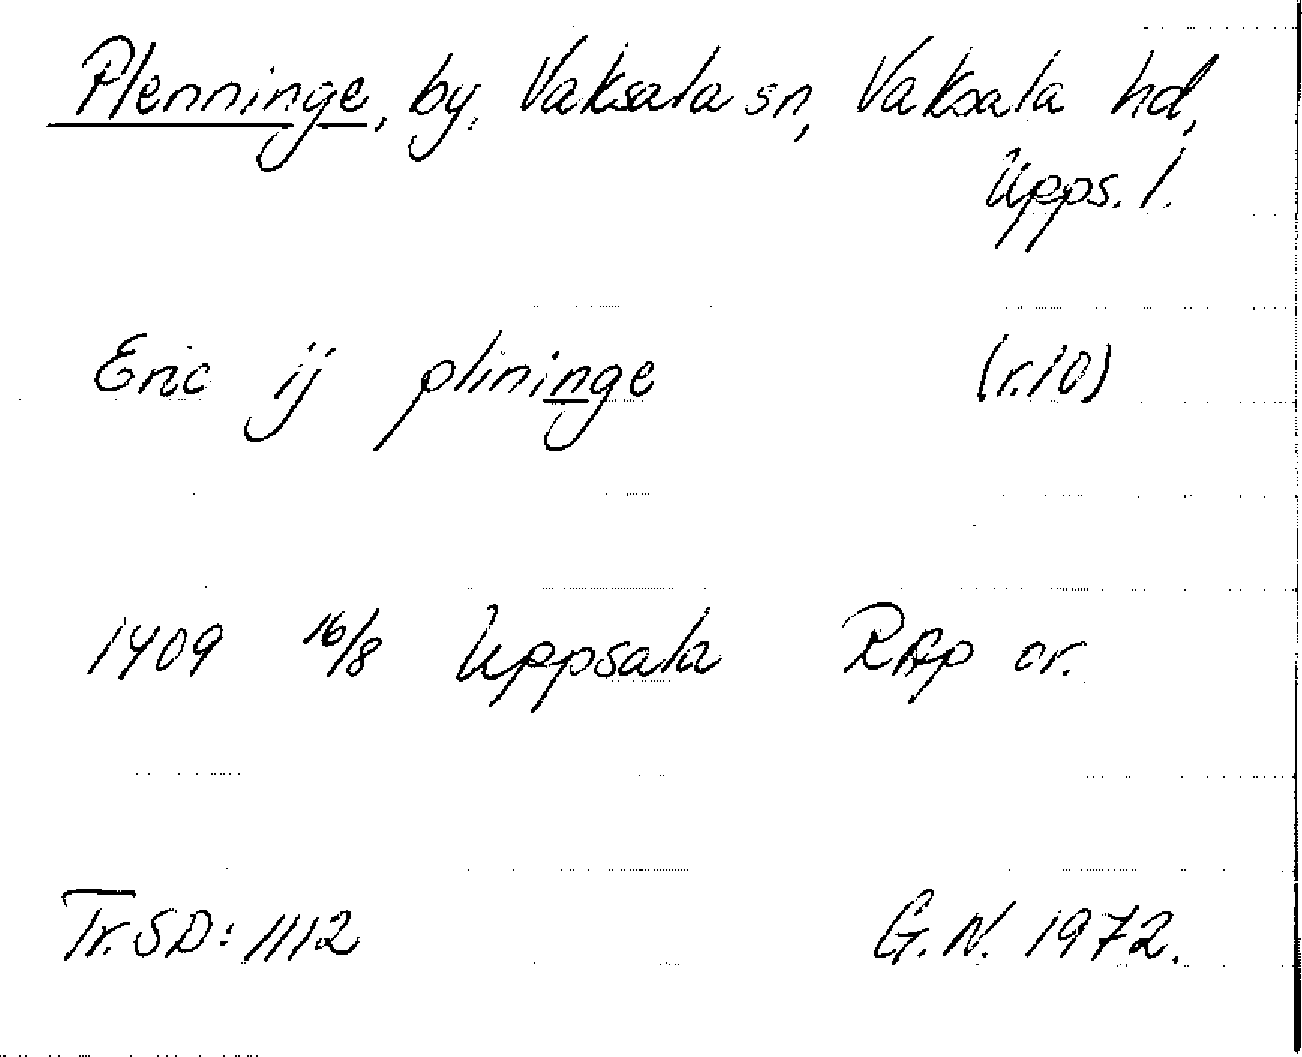 Plenninge, by, Vaksala sn, Vaksala hd,
Upps. l.
Eric ij plininge (r.10)
1409 16/8 Uppsala RAp or.
Tr. SD: 1112 G.N. 1972.